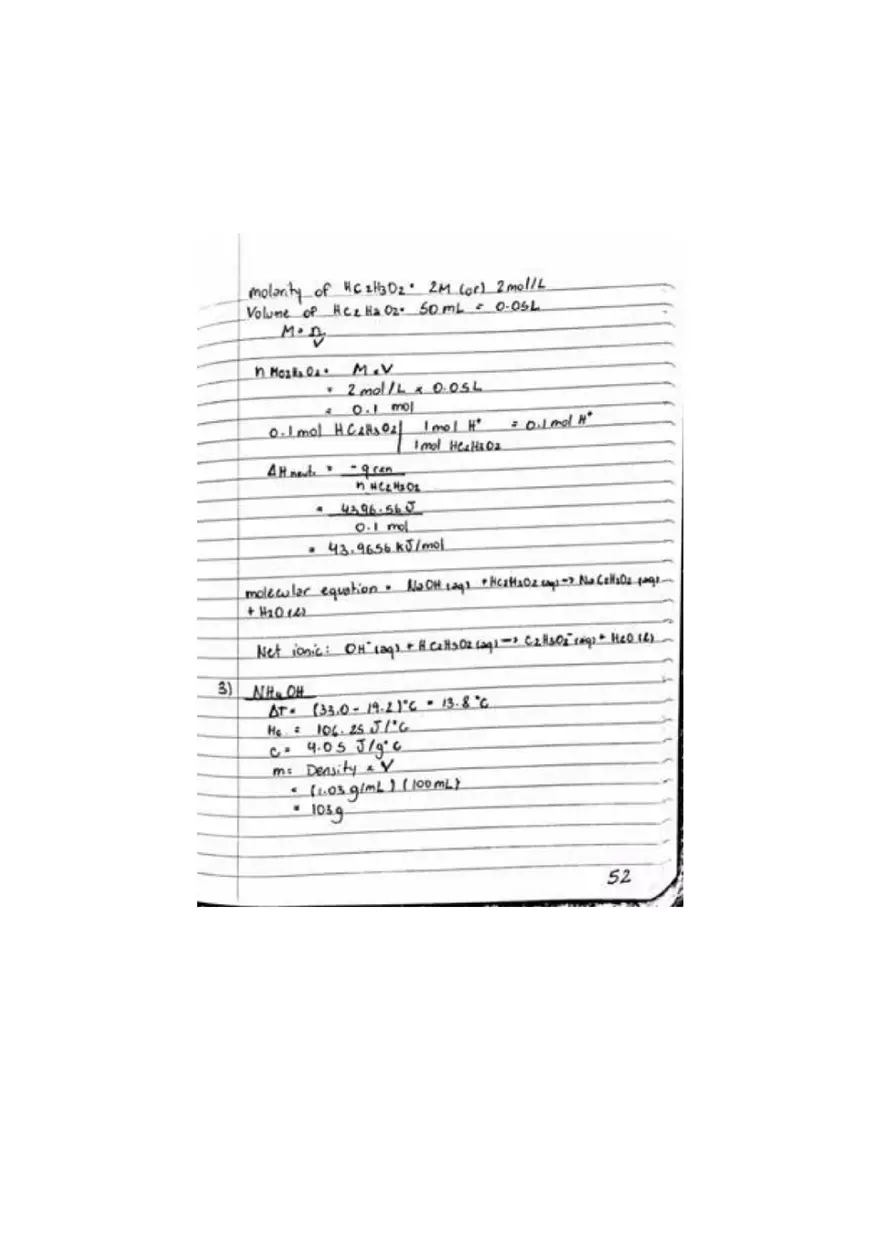 molarity of HC2H3O2 = 2M (or) 2mol/L
Volume of HC2H3O2 = 50 mL = 0.05L
M = n
V
n HC2H3O2 = M × V
= 2 mol/L × 0.05L
= 0.1 mol
0.1 mol HC2H3O2 | 1 mol H⁺ = 0.1 mol H⁺
1 mol HC2H3O2
ΔH neut. = -q rxn
n HC2H3O2
= 4396.56 J
0.1 mol
= 43.9656 kJ/mol
molecular equation = NaOH (aq) + HC2H3O2 (aq) → NaC2H3O2 (aq)
+ H2O (l)
Net ionic: OH⁻ (aq) + HC2H3O2 (aq) → C2H3O2⁻ (aq) + H2O (l)
3) NH4OH
ΔT = (33.0 - 19.2)°C = 13.8 °C
Hc = 106.25 J/°C
c = 4.05 J/g°C
m = Density × V
= (1.03 g/mL) (100 mL)
= 103g
52